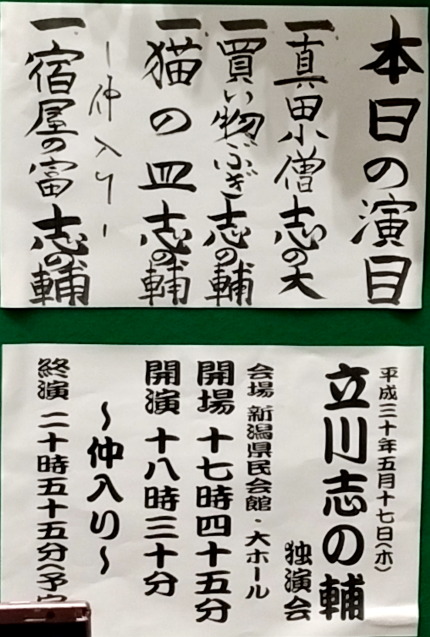 本日の演目
一真田小僧 志の大
一買い物ぶぎ 志の輔
一猫の皿 志の輔
－仲入り－
一宿屋の富 志の輔
平成三十年五月十七日(木)
立川志の輔
独演会
会場 新潟県民会館・大ホール
開場 十七時四十五分
開演 十八時三十分
～仲入り～
終演 二十時五十五分(予定